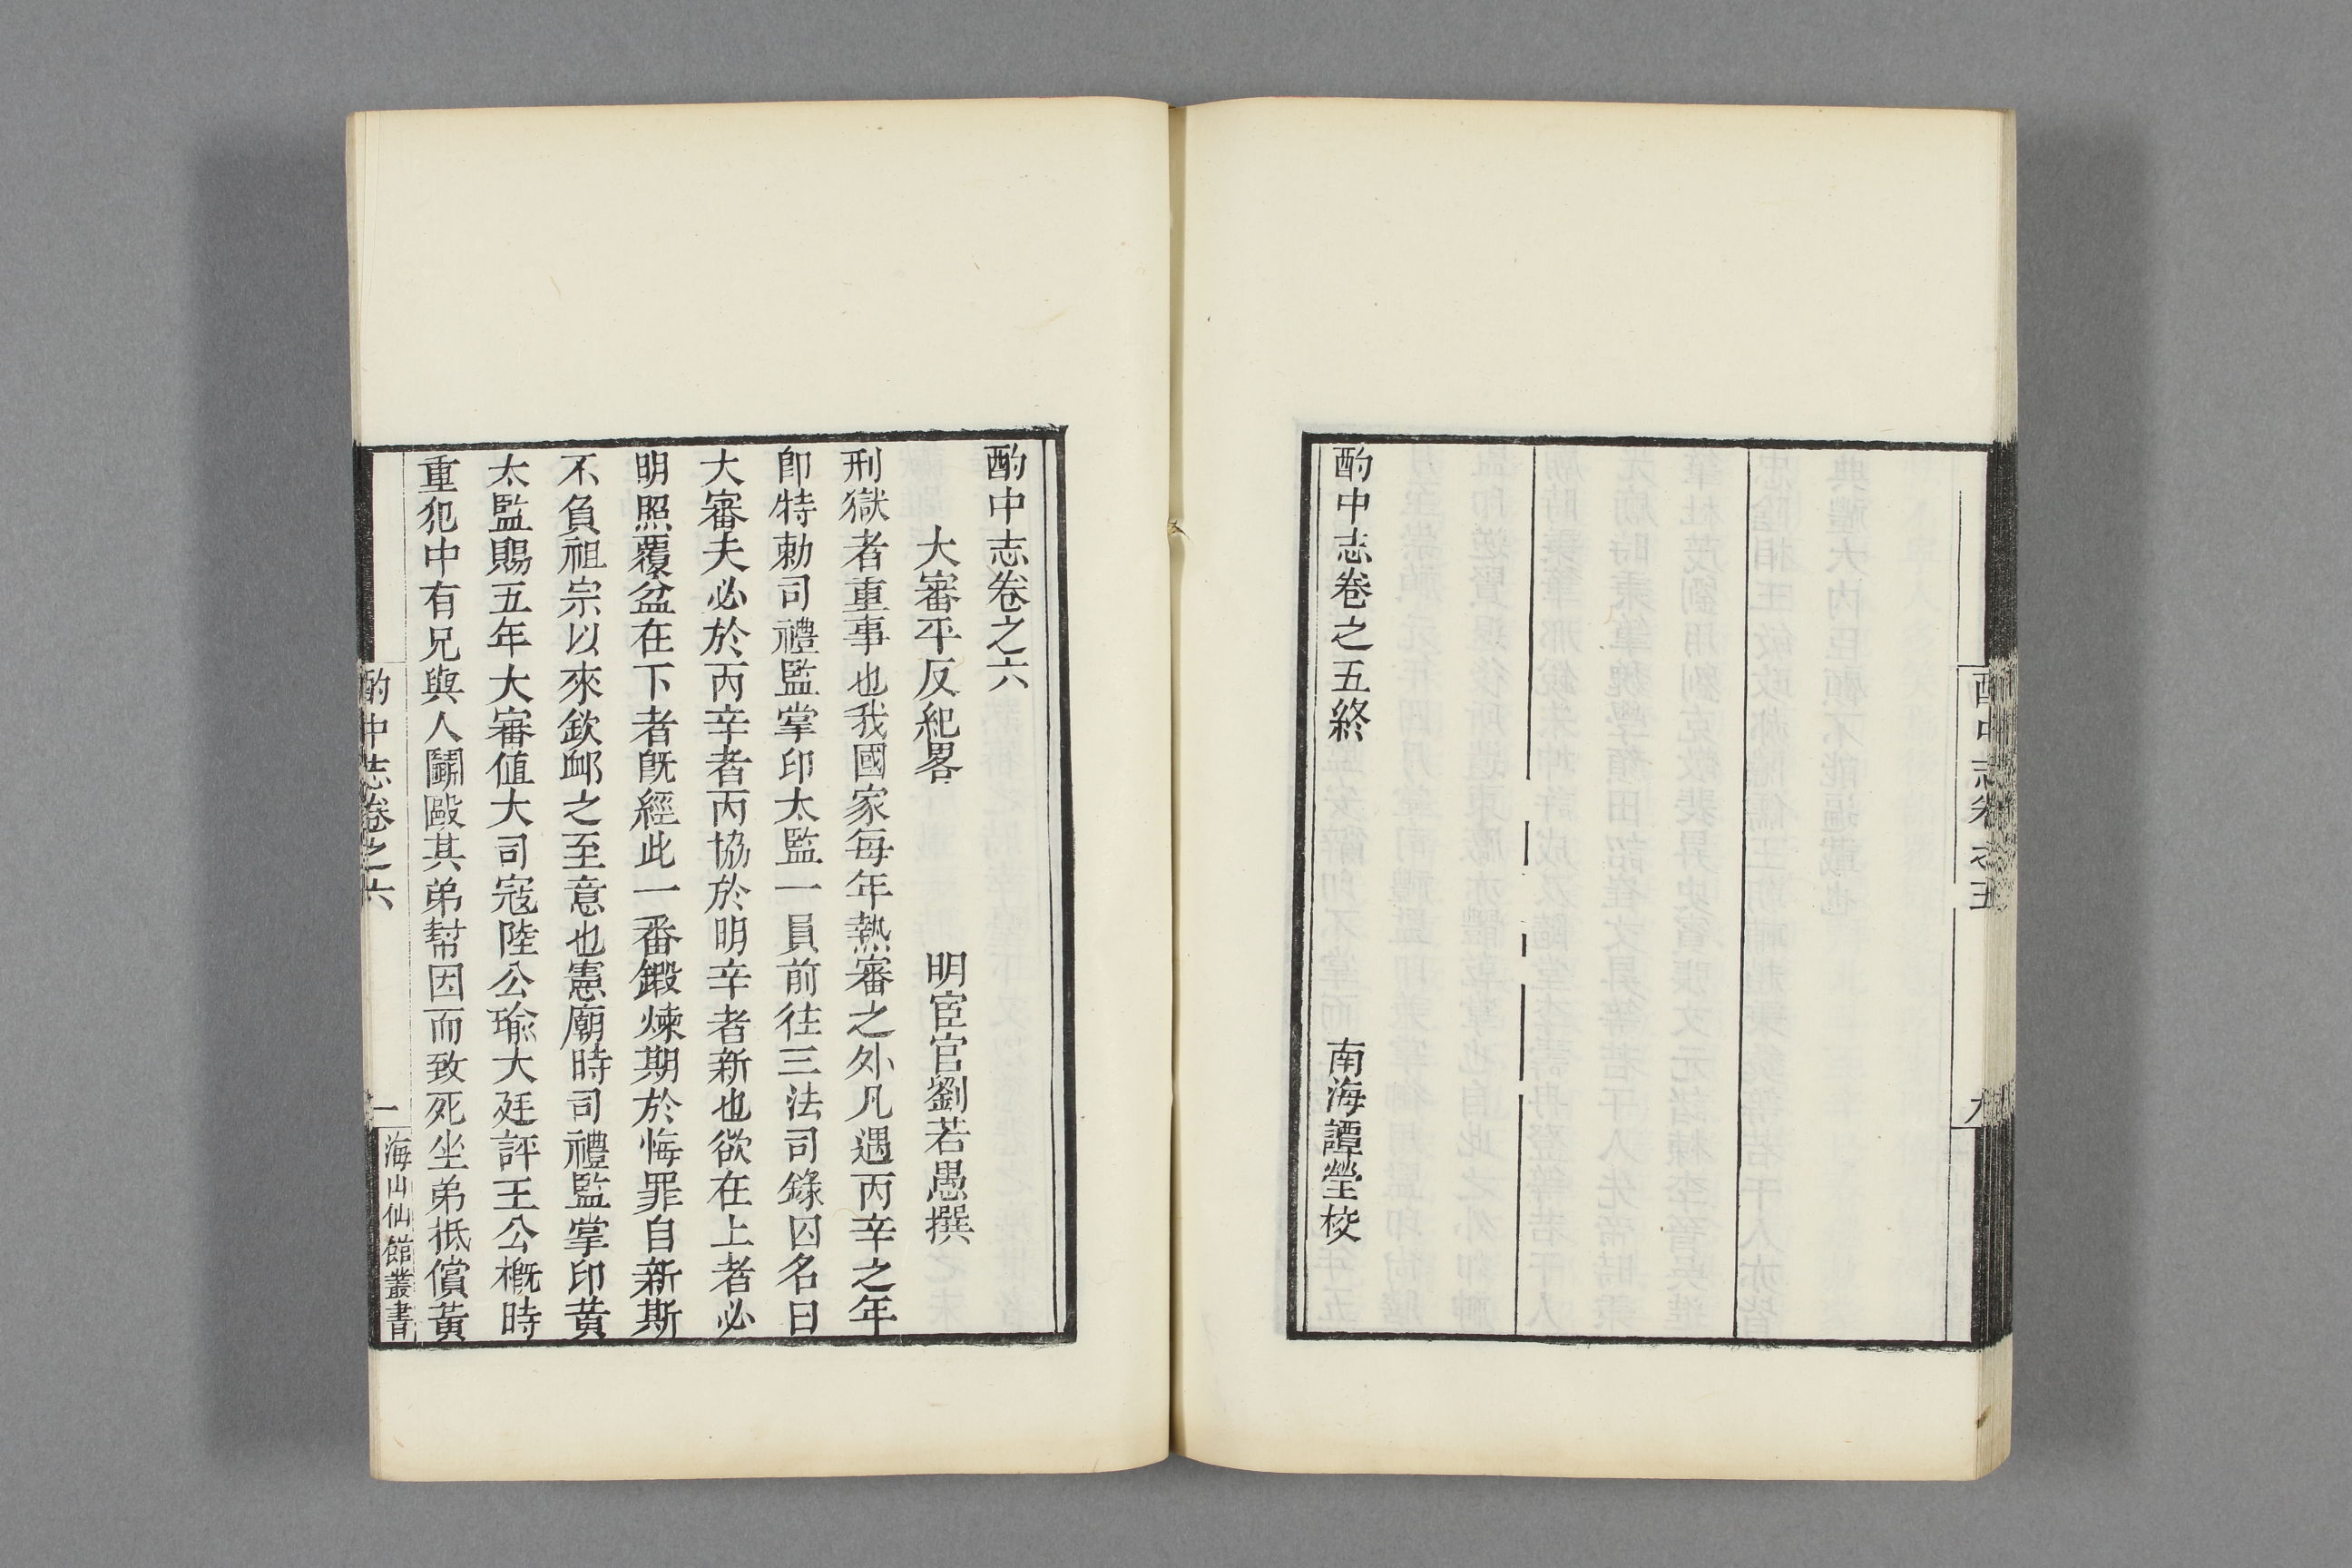 酌中志卷之五
九
酌中志卷之五終
南海譚瑩校
酌中志卷之六
大審平反紀畧
明宦官劉若愚撰
刑獄者重事也我國家每年熱審之外凡遇丙辛之年
卽特勅司禮監掌印太監一員前往三法司錄囚名曰
大審夫必於丙辛者丙協於明辛者新也欲在上者必
明照覆盆在下者旣經此一番鍛煉期於悔罪自新斯
不負祖宗以來欽卹之至意也憲廟時司禮監掌印黃
太監賜五年大審值大司寇陸公瑜大廷評王公槪時
重犯中有兄與人鬬毆其弟幇因而致死坐弟抵償黃
酌中志卷之六
一
海山仙館叢書